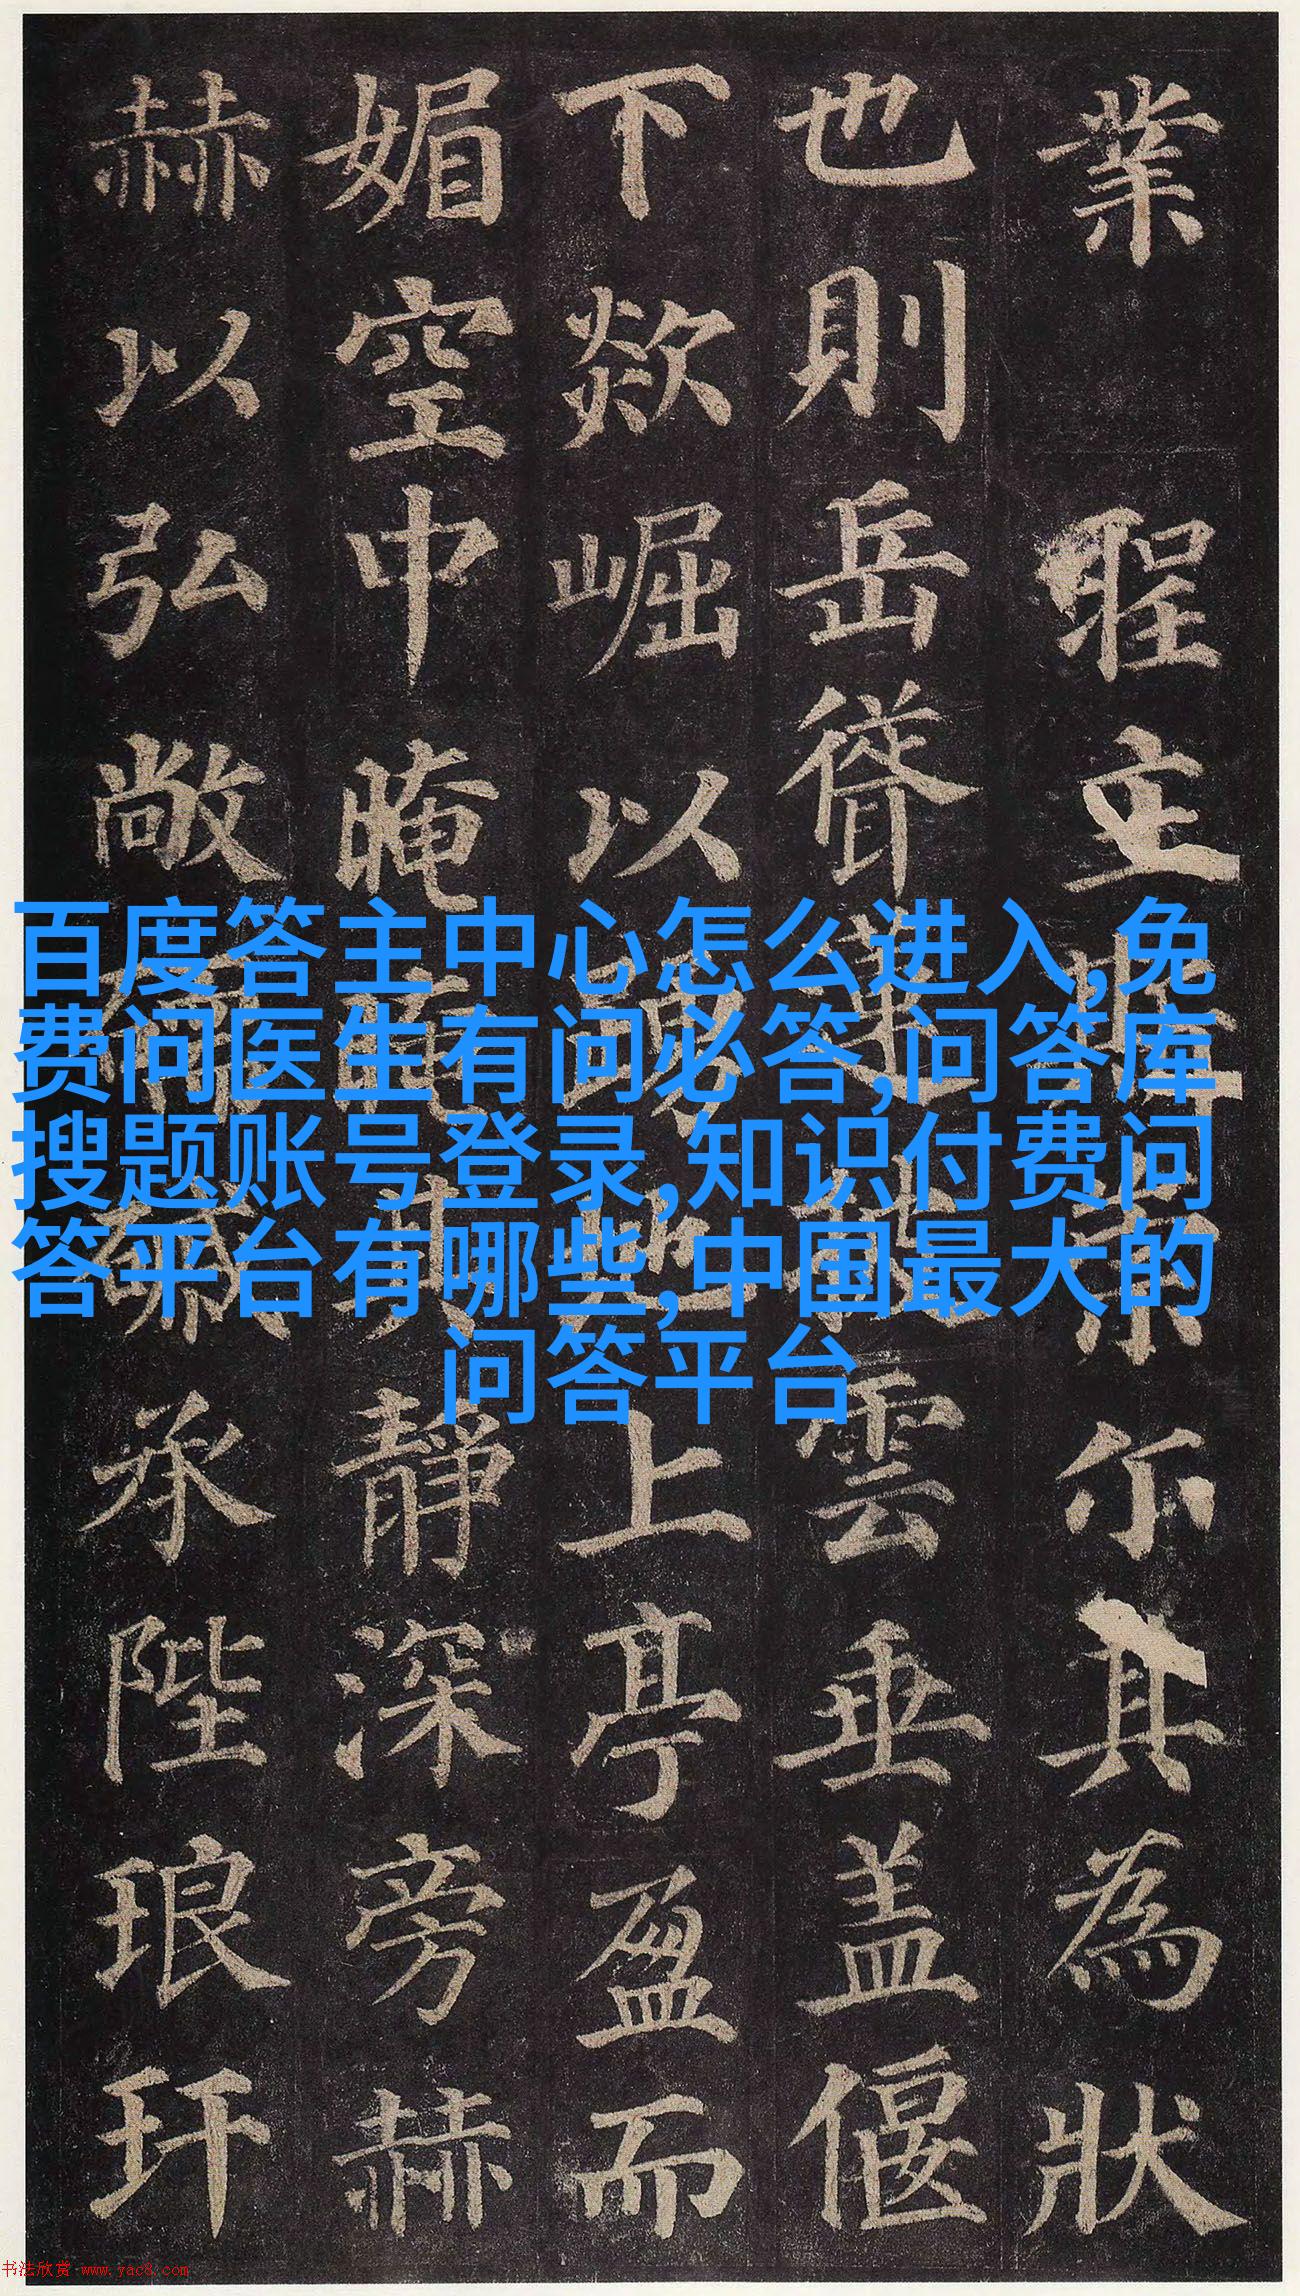 業立尓其為狀
也則岳聳雲垂盖偃
下欻崛以上亭盈而
媚空中晻其靜深旁赫
赫以弘敞承陛琅玕
百度答主中心怎么进入,免
费问医生有问必答,问答库
搜题账号登录,知识付费问
答平台有哪些,中国最大的
问答平台
书法欣赏 www.yac8.com